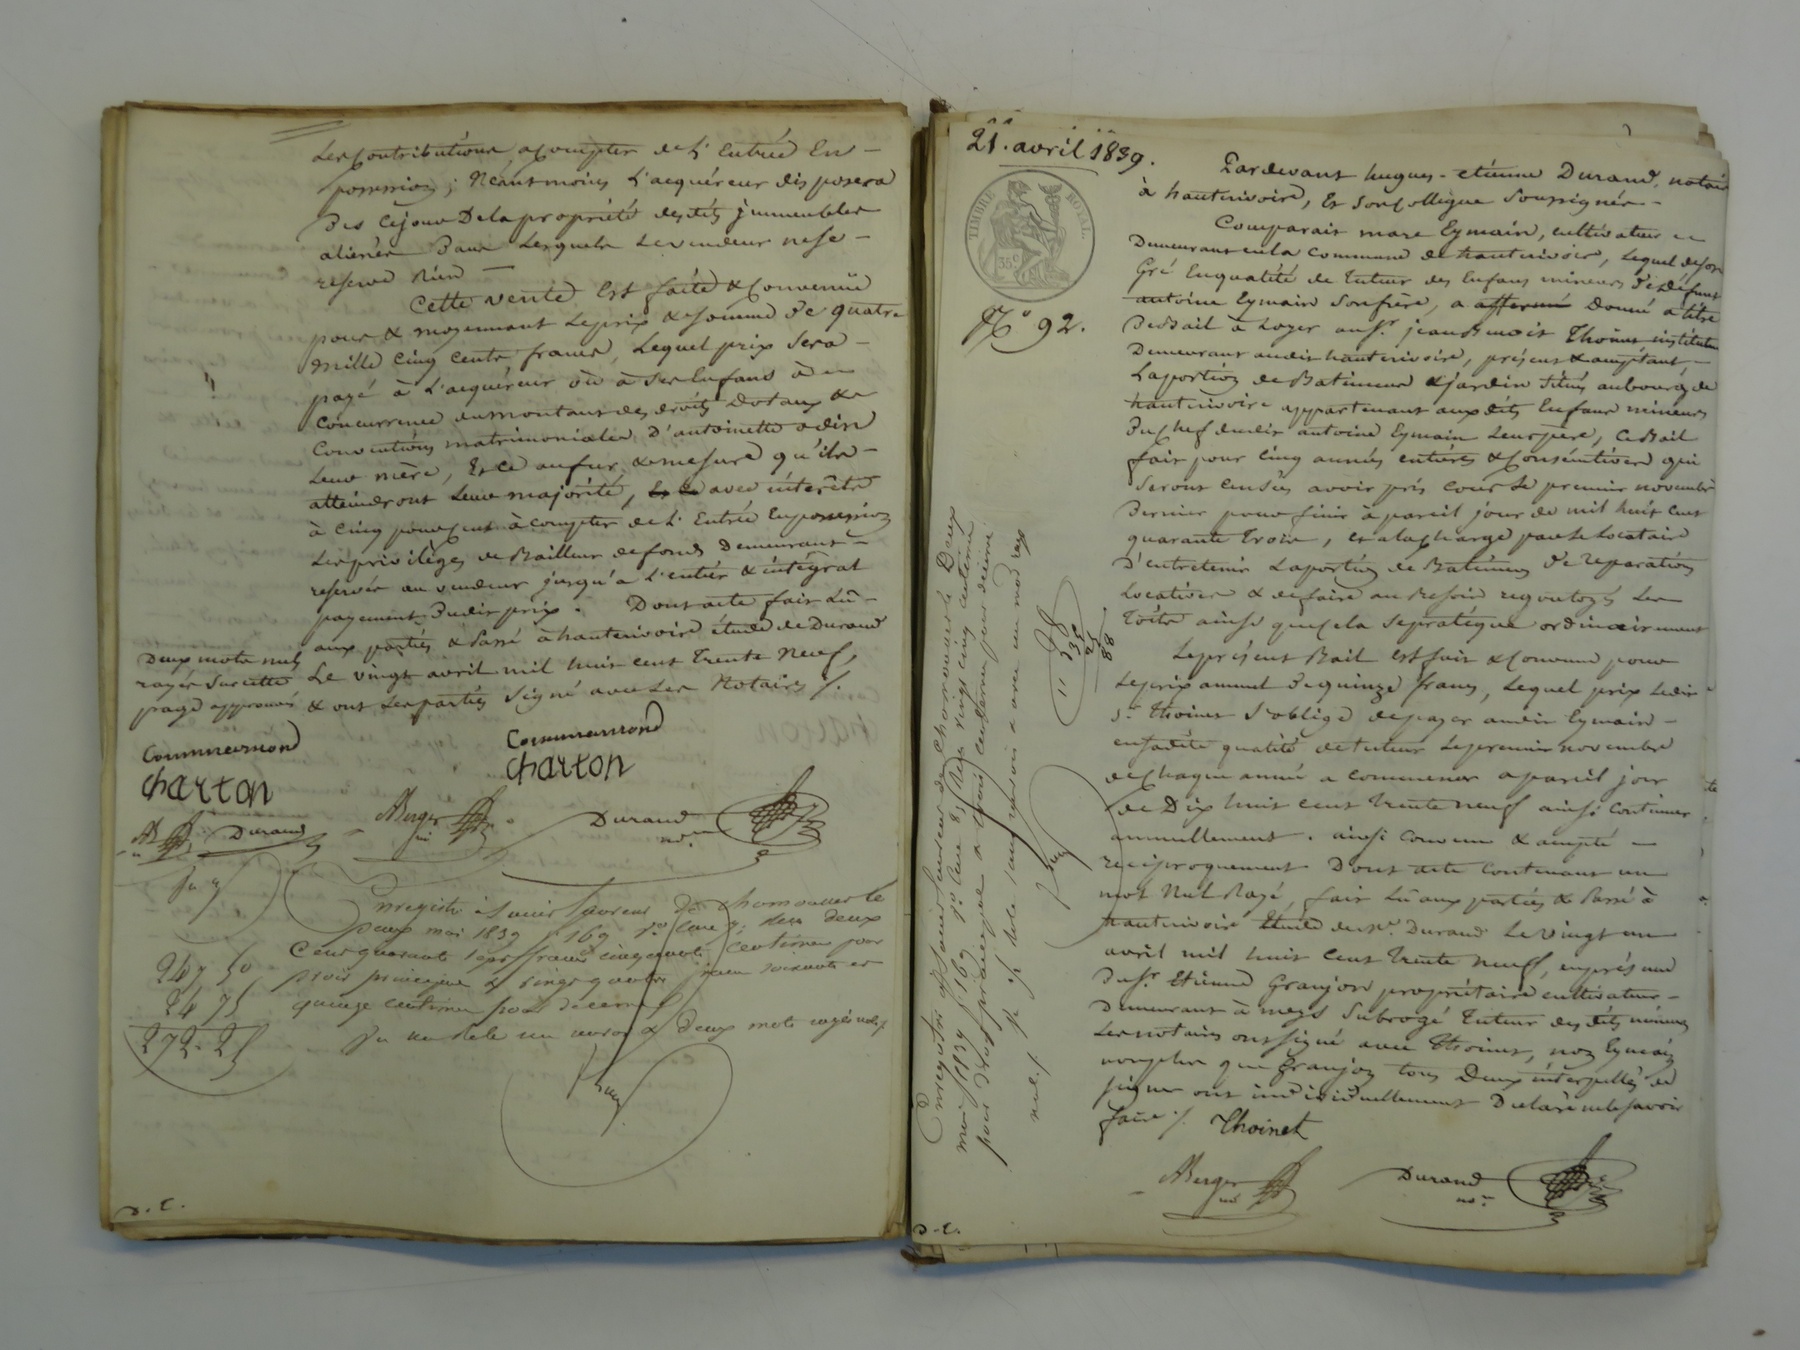 Les Contributions a compter de L'Entrée En
possession; Néantmoins L'acquéreur disposera
Des Cejour De la propriété desdits jmmeubles
aliénés Dans Lesquels Le vendeur ne se
reserve Rien
Cette vente Est faite & Convenüe
pour & moyennant Leprix & Somme De quatre
mille Cinq Cents francs, Lequel prix Sera
payé à L'acquéreur où à Ses Enfans à
Concurrence du montant des droits Dotaux &
Conventions matrimoniales D'antoinette odin
Leur mère, Et Ce aufur & mesure qu'ils
atteindront Leur majorité, avec intérêts
à Cinq pour Cent à compter de L'Entrée En possession
Les privilèges de Bailleur de fonds Demeurant
reservés au vendeur jusqu'a L'entier & intégral
payement Dudit prix. Dont acte fait Lû
aux parties & Passé à hauterivoire étude de Durand
Le vingt avril mil huit cent trente Neuf,
& ont Les parties Signé avec Les Notaires /.
Deux mots nuls
rayés Sur cette
page approuvés
Commarmond
Charton
Commarmond
Charton
Durand
ABerger
Durand
nore
Enregistré à St Laurent de Chamousset le
Deux mai 1839 f° 169 Vo Case 7. Reçu deux
Cent quarante sept francs cinquante Centimes pour
Droit principal & vingt quatre francs soixante et
quinze Centimes pour décime
247, 50
24 75
272. 25
D. E.
21. avril 1839.
TIMBRE ROYAL.
35 c
N° 92.
Pardevant hugues-etienne Durand, notaire
à hauterivoire, Et Son Collègue Soussignés
Comparait marc Eymain, cultivateur
Demeurant en la commune de hauterivoire, Lequel de Son
Gré En qualité de Tuteur des Enfans mineurs De Défunt
antoine Eymain Son frère, a affermé Donné a titre
De Bail à Loyer au Sr. jean Benoit Thoinet instituteur
Demeurant audit hauterivoire, présent & acceptant
La portion de Batiment & jardin Situés au bourg de
hauterivoire appartenant auxdits Enfans mineurs
Du Chef dudit antoine Eymain Leur père, Ce Bail
fait pour Cinq années entières & Consécutives qui
Seront Censées avoir pris Cours Le premier novembre
Dernier pour finir à pareil jour de mil huit cent
quarante trois, Et a la charge par Le Locataire
D'entretenir La portion de Batiment De reparations
Locatives & de faire au Besoin regoutoyer Les
Toits ainsi que Cela Se pratique ordinairement
Le présent Bail Est fait & Convenu pour
Le prix annuel De quinze francs, Lequel prix Ledit
Sr. Thoinet S'oblige de payer audit Eymain
en Sadite qualité de tuteur Le premier novembre
de Chaque année a commencer a pareil jour
de Dix huit cent trente neuf ainsi continuer
annuellement. ainsi convenu & accepté
reciproquement Dont acte Contenant un
mot Nul Rayé, fait Lû aux parties & Passé à
hauterivoire Etude de Me. Durand Le vingt un
avril mil huit cent trente neuf, en présence
Du Sr. Etienne Granjon propriétaire cultivateur
Demeurant à meys Subrogé Tuteur desdits mineurs
Les notaires ont Signé avec Thoinet, non Eymain
non plus que Granjon tous Deux interpellés de
Signer ont individuellement Déclaré ne le Savoir
faire /. Thoinet
ABerger
Durand
nore
Enregistré à St Laurent de Chamousset le Deux
mai 1839 f° 169 Vo Case 8, Reçu vingt cinq centimes
D. E.